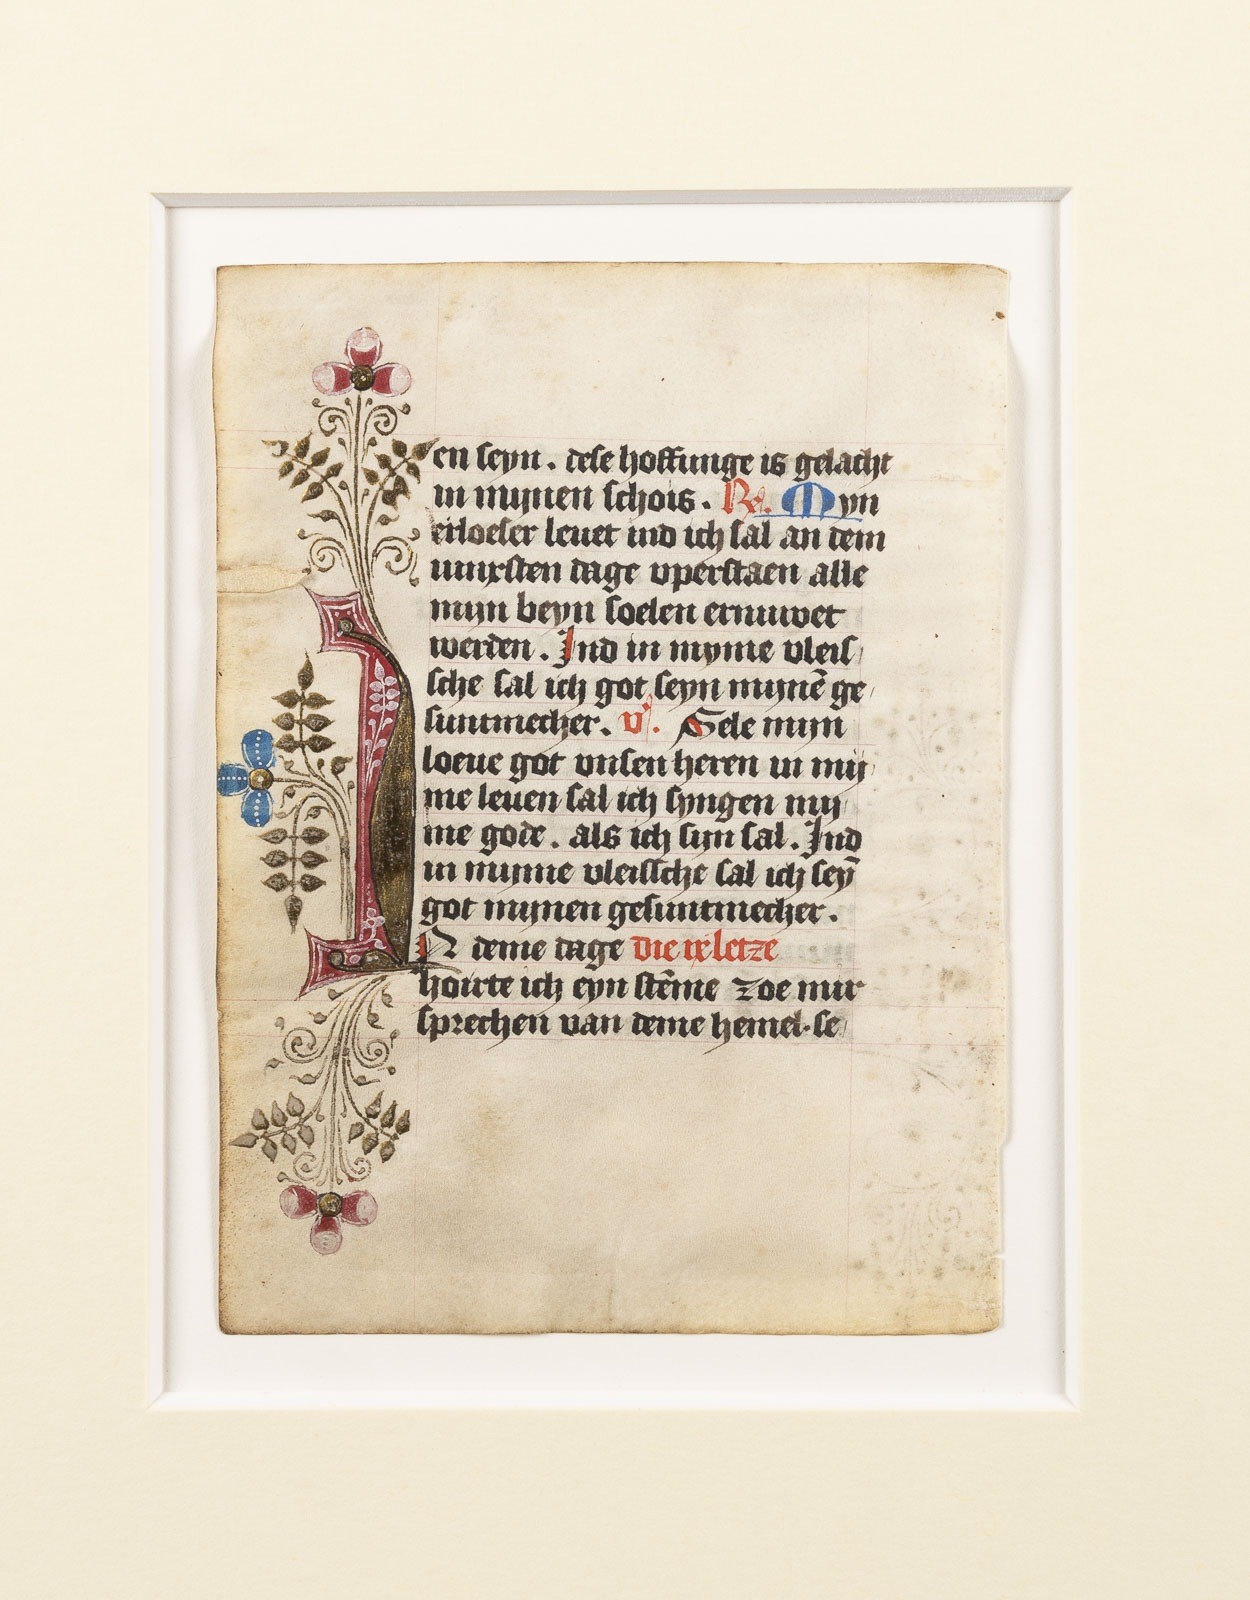 en seyn. dese hoffunge is gelacht
in mynen schois. R. Myn
erloeser leuet ind ich sal an dem
iunxsten dage vperstaen alle
myn beyn soelen ernuwet
werden. Ind in myme vleis
sche sal ich got seyn mynē ge
suntmecher. v. Sele myn
loeue got vnsen heren in my
me leuen sal ich syngen my
me gode. als ich syn sal. Ind
in myme vleissche sal ich seȳ
got mynen gesuntmecher.
IN deme dage die ix letze
hoirte ich eyn stēme zoe mir
sprechen van deme hemel. se